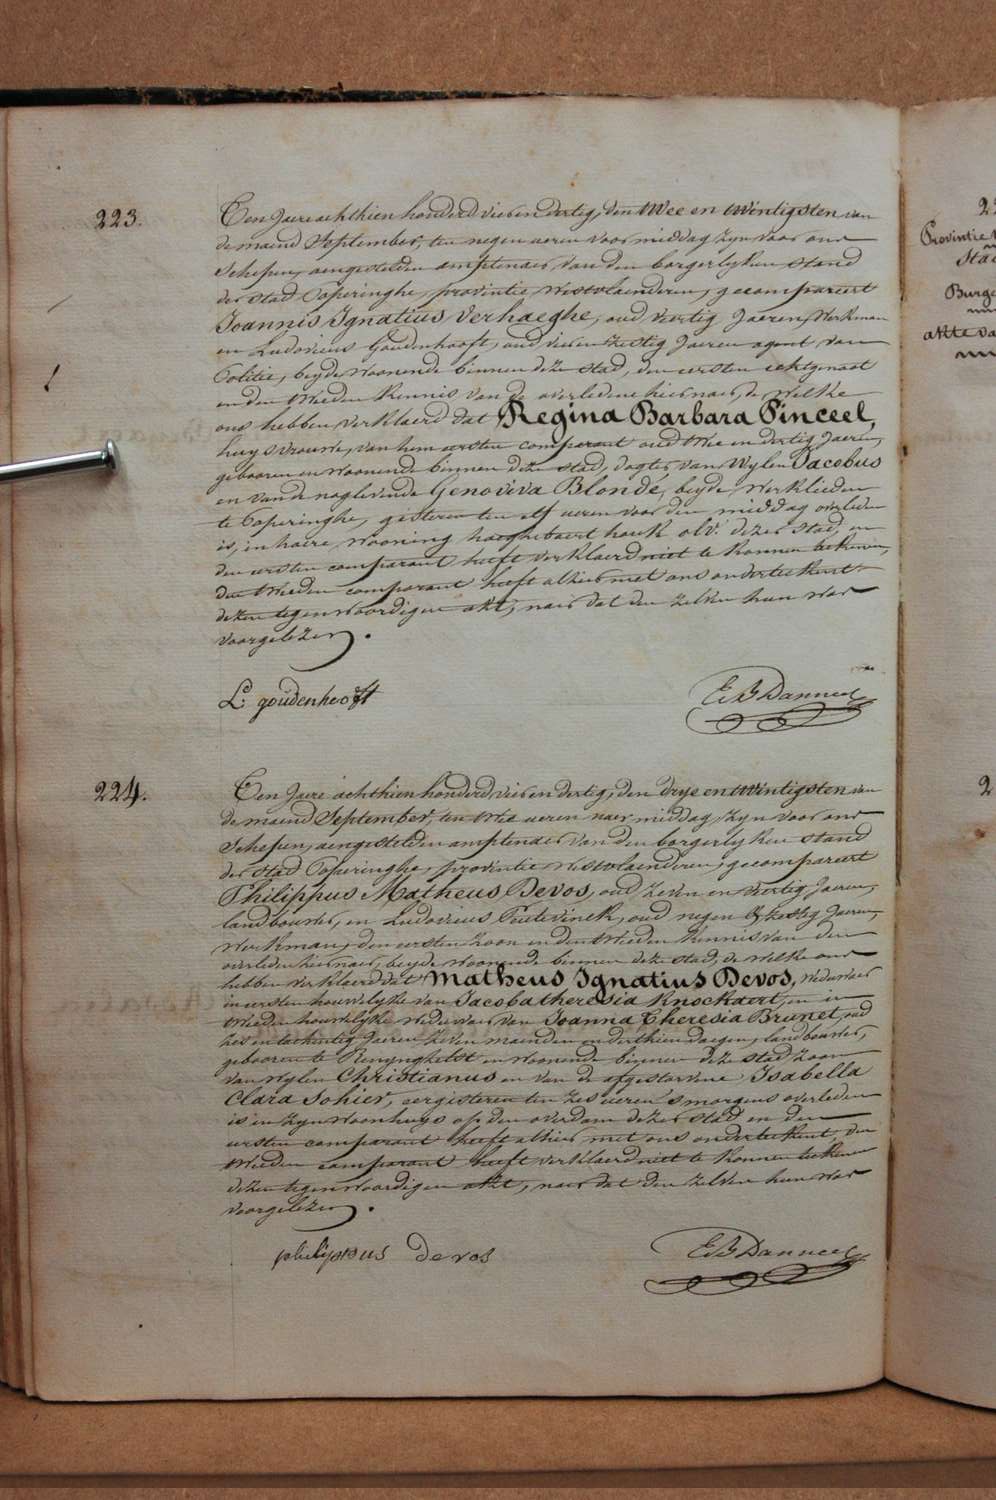 223.
Een Jaere achthien honderd vier en dertig, den twee en twintigsten van
de maend September, ten negen ueren voor middag zyn voor ons
Schepen, aengestelden amptenaer van den borgerlyken stand
der stad Poperinghe, provintie westvlaenderen, gecompareert
Joannis Ignatius Verhaeghe, oud veertig Jaeren, Werkman
en Ludovicus Goudenhooft, oud vier en zestig Jaeren agent van
Politie, beyde woonende binnen deze stad, den eersten echtgenoot
en den tweeden Kennis van de overledene hier naer, de welke
ons hebben verklaerd dat Regina Barbara Pinceel,
huysvrouwe, van hem eersten comparant oud twee en dertig Jaeren,
gebooren en woonende binnen deze stad, dogter van Wylen Jacobus
en van de naglevende Genoviva Blondé, beyde Werklieden
te Poperinghe, gisteren ten elf ueren voor den middag overleden
is, in haere wooning haeghebaert houk olv. dezer stad, en
den eersten comparant heeft verklaerd niet te konnen teekenen,
den tweeden comparant heeft alhier met ons onderteekent
dezen tegenwoordigen akt, naer dat den zelven hun was
voorgelezen.
L. goudenhooft
E B Danneel
224.
Een Jaere achthien honderd vier en dertig, den drye en twintigsten van
de maend September, ten twee ueren naer middag zyn voor ons
Schepen, aengestelden amptenaer van den borgerlyken stand
der stad Poperinghe, provintie westvlaenderen, gecompareert
Philippus Matheus Devos, oud zeven en veertig Jaeren,
landbouwer, en Ludovicus Peutevinck, oud negen & zestig Jaeren,
Werkman, den eersten zoon en den tweeden Kennis van den
overleden hier naer, beyde woonende binnen deze stad, de welke ons
hebben verklaerd dat Matheus Ignatius Devos, Weduwaer
in eersten houwelyke van Jacoba theresia Knockaert, en in
tweeden houwelyke weduwaer van Joanna Theresia Brunet, oud
zes en tachentig Jaeren zeven maenden en derthien daegen, landbouwer,
gebooren te Renynghelst en woonende binnen deze stad zoon
van wylen Christianus en van de afgestorvene Isabella
Clara Sohier, eergisteren ten zes ueren s'morgens overleden
is in zyn woonhuys op den overdam dezer stad en den
eersten comparant heeft alhier met ons onderteekent, den
tweeden comparant heeft verklaerd niet te konnen teekenen
dezen tegenwoordigen akt, naer dat den zelven hun was
voorgelezen.
philippus devos
E B Danneel
Provintie
Burge
akte va